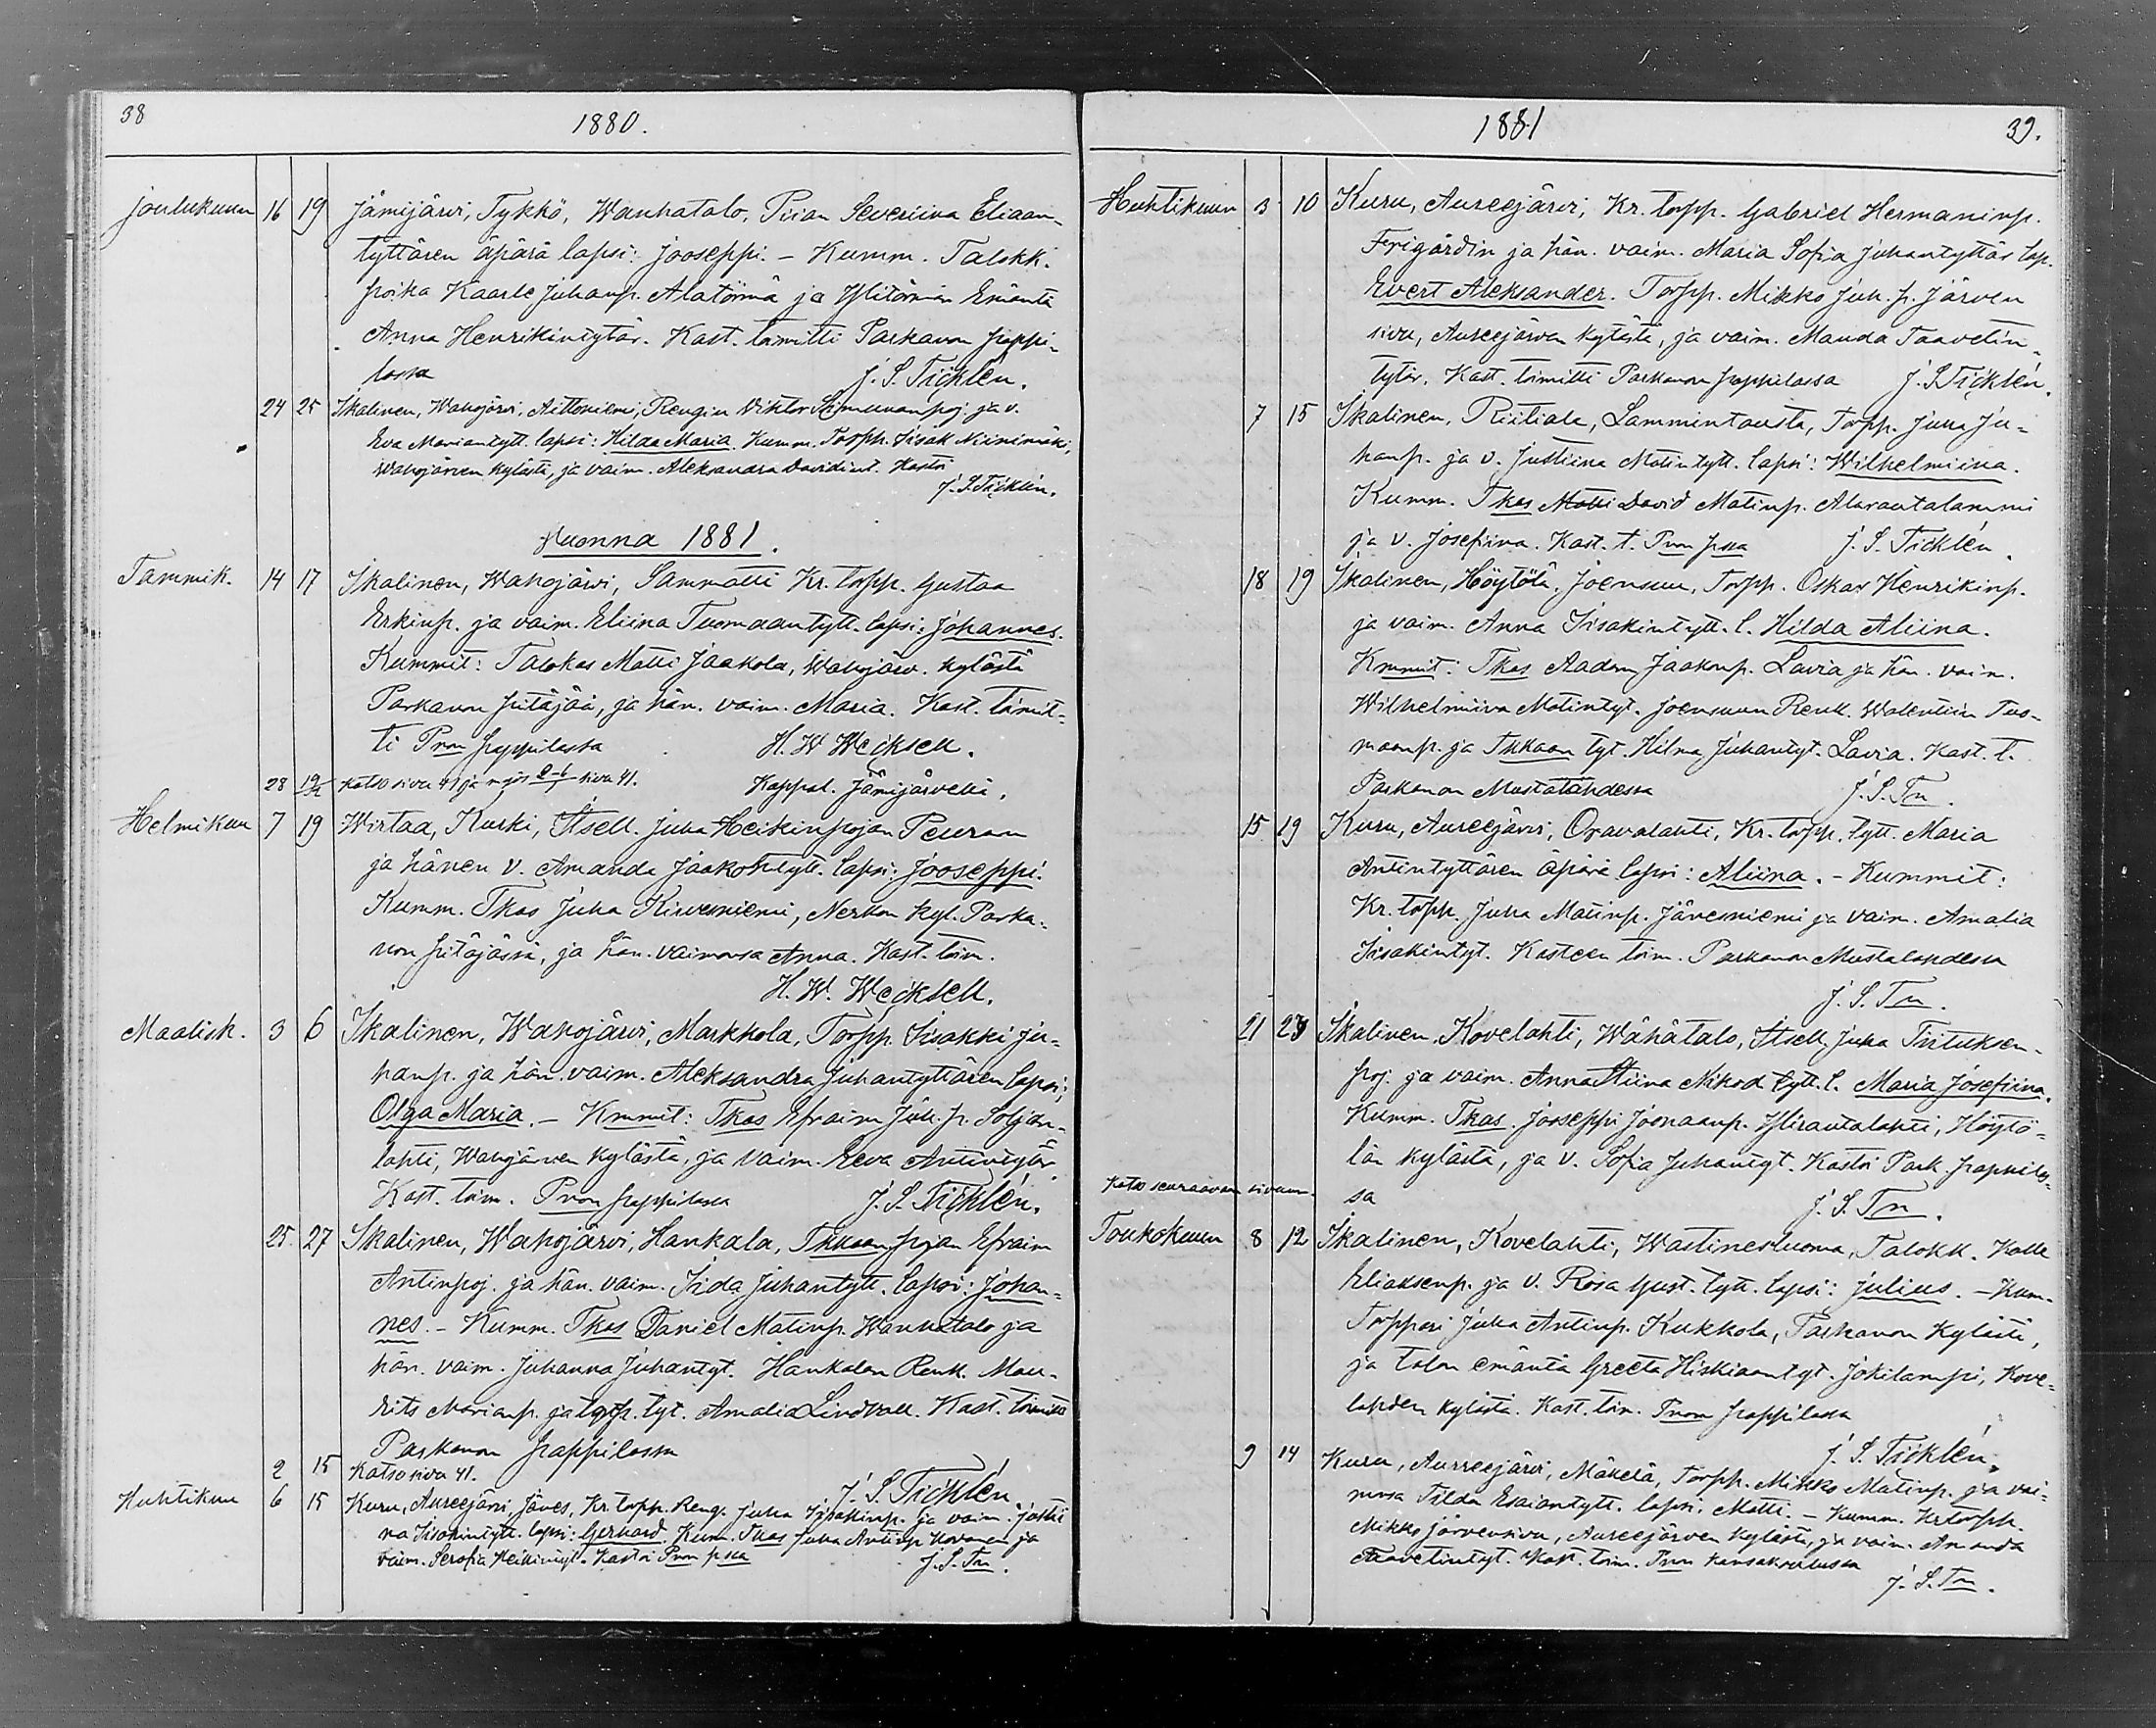 38
1880.
Joulukuun 16 19 Jämijärvi, Tykkö, Wanhatalo, Piian Severiina Eliaan-
tyttären äpärä lapsi: Jooseppi. - Kumm. Talokk.
poika Kaarle Juhanp. Alatörmä ja Ylitörmän Emäntä
Anna Henrikintytär. Kast. toimitti Parkanon pappi-
lassa J. S. Ticklén.
24 25 Ikalinen, Wahojärvi, Aittoniemi, Rengin Viktor Seimunanpoj. ja v.
Eva Mariantytt. lapsi: Hilda Maria. Kumm. Torpp. Iisak Niinimäki,
Wahojärven kylästä, ja vaim. Aleksandra Davidint. Kastoi
J. S. Ticklén.
Vuonna 1881.
Tammik. 14 17 Ikalinen, Wahojärvi, Sammatti Kr. torpp. Gustaa
Erkinp. ja vaim. Eliina Tuomaantytt. lapsi: Johannes.
Kummit: Talokas Matti Jaakola, Wahojärv. kylästä
Parkanon pitäjää, ja hän. vaim. Maria. Kast. toimit-
ti Pnon pappilassa H. W Wecksell.
28 19/2 Katso sivu 41 ja myös sivu 41. Kappal. Jämijärvellä.
Helmikuu 7 19 Wirtaa, Kurki, Itsell. Juha Heikinpojan Peuran
ja hänen v. Amanda Jaakontytt. lapsi: Jooseppi.
Kumm. Tkas Juha Kirvesniemi, Nerkon kyl. Parka-
non pitäjässä, ja hän. vaimonsa Anna. Kast. toim.
H. W. Wecksell.
Maalisk. 3 6 Ikalinen, Wahojärvi, Markkola, Torpp. Iisakki Ju-
hanp. ja hän. vaim. Aleksandra Juhantyttären lapsi;
Olga Maria. - Kmmit: Tkas Efraim Juh. p. Poljan-
lahti, Wahojärven kylästä, ja Vaim. Eeva Antintytär.
Kast. toim. Pnon pappilassa J. S. Ticklén.
25. 27 Ikalinen, Wahojärvi, Hankala, Tkkaan pojan Efraim
Antinpoj. ja hän. vaim. Iida Juhantytt. lapsi: Johan-
nes. - Kumm. Tkas Daniel Matinp. Wanhatalo ja
hän. vaim. Juhanna Juhantyt. Hankalan Renk. Mau-
rits Marianp. ja torp. tyt. Amalia Lindvall. Kast. toimitti
Parkanon pappilassa
2 15 Katso sivu 41. J. S. Ticklén.
Huhtikuu 6 15 Kuru, Aureejärvi, Jäves, Kr. torpp. Reng. Juha Iisakinp. ja vaim. Justii
na Iisakintytt. lapsi: Gerhard. Kum. Tkas Juha Antinp. Kovanen ja
vaim. Serafia Heikintyt. Kastoi Pnon pssa J. S. Tn.
1881
39.
Huhtikuun 3 10 Kuru, Aureejärvi, Kr. torpp. Gabriel Hermaninp.
Frigårdin ja hän. vaim. Maria Sofia Juhantyttär lap.
Evert Aleksander. Torpp. Mikko Juh. p. Järven
sivu, Aureejärven kylästä, ja vaim. Manda Taavetin-
tytär. Kast. toimitti Parkanon pappilassa J. S. Ticklén.
7 15 Ikalinen, Riitiala, Lammintausta, Torpp. Juha Ju-
hanp. ja v. Justiina Matintytt. lapsi: Wilhelmiina.
Kumm. Tkas Matti David Matinp. Alarautalammi
ja v. Josefiina. Kast. t. Pnon pssa J. S. Ticklén.
18 19 Ikalinen, Höytölä, Joensuu, Torpp. Oskar Henrikinp.
ja vaim. Anna Iisakintytt. l. Hilda Aliina.
Kmmit: Tkas Aadam Jaakonp. Lavia ja hän. vaim.
Wilhelmiina Matintyt. Joensuun Renk. Walentiin Tuo-
maanp. ja Tkkaan tyt. Hilma Juhantyt. Lavia. Kast. t.
Parkanon Mustalahdessa J. S. Tn.
15. 19 Kuru, Aureejärvi, Oravalahti, Kr. torpp. tytt. Maria
Antintyttären äpärä lapsi: Aliina. - Kummit:
Kr. torpp. Juha Matinp. Jävesniemi ja vaim. Amalia
Iisakintyt. Kasteen toim. Parkanon Mustalahdessa
J. S. Tn.
21 23 Ikalinen, Kovelahti, Wähätalo, Itsell. Juha Tiituksen-
poj. ja vaim. Anna Stiina Nikod. tytt. l. Maria Josefiina.
Kumm. Tkas. Jooseppi Joonaanp. Ylirautalahti, Höytö-
län kylästä, ja v. Sofia Juhantyt. Kastoi Park. pappilas-
sa J. S. Tn.
Katso seuraavan sivuun.
Toukokuun 8 12 Ikalinen, Kovelahti, Wastinesluoma, Talokk. Kalle
Eliaksenp. ja v. Rosa Gust. tytt. lapsi: Julius. - Kum-
Torppari Juha Antinp. Kukkola, Parkanon Kylästä,
ja talon emäntä Greeta Hiskiaantyt. Jokilampi, Kove-
lahden kylästä. Kast. toim. Pnon pappilassa
J. S. Ticklén.
9 14 Kuru, Aureejärvi, Mäkelä, Torpp. Mikko Matinp. ja vai-
monsa Tilda Esaiantytt. lapsi. Matti. - Kumm. Kr torpp.
Mikko Järvensivu, Aureejärven kylästä, ja vaim. Amanda
Taavetintyt. Kast. toim. Pnon kansakoulussa
J. S. Tn.